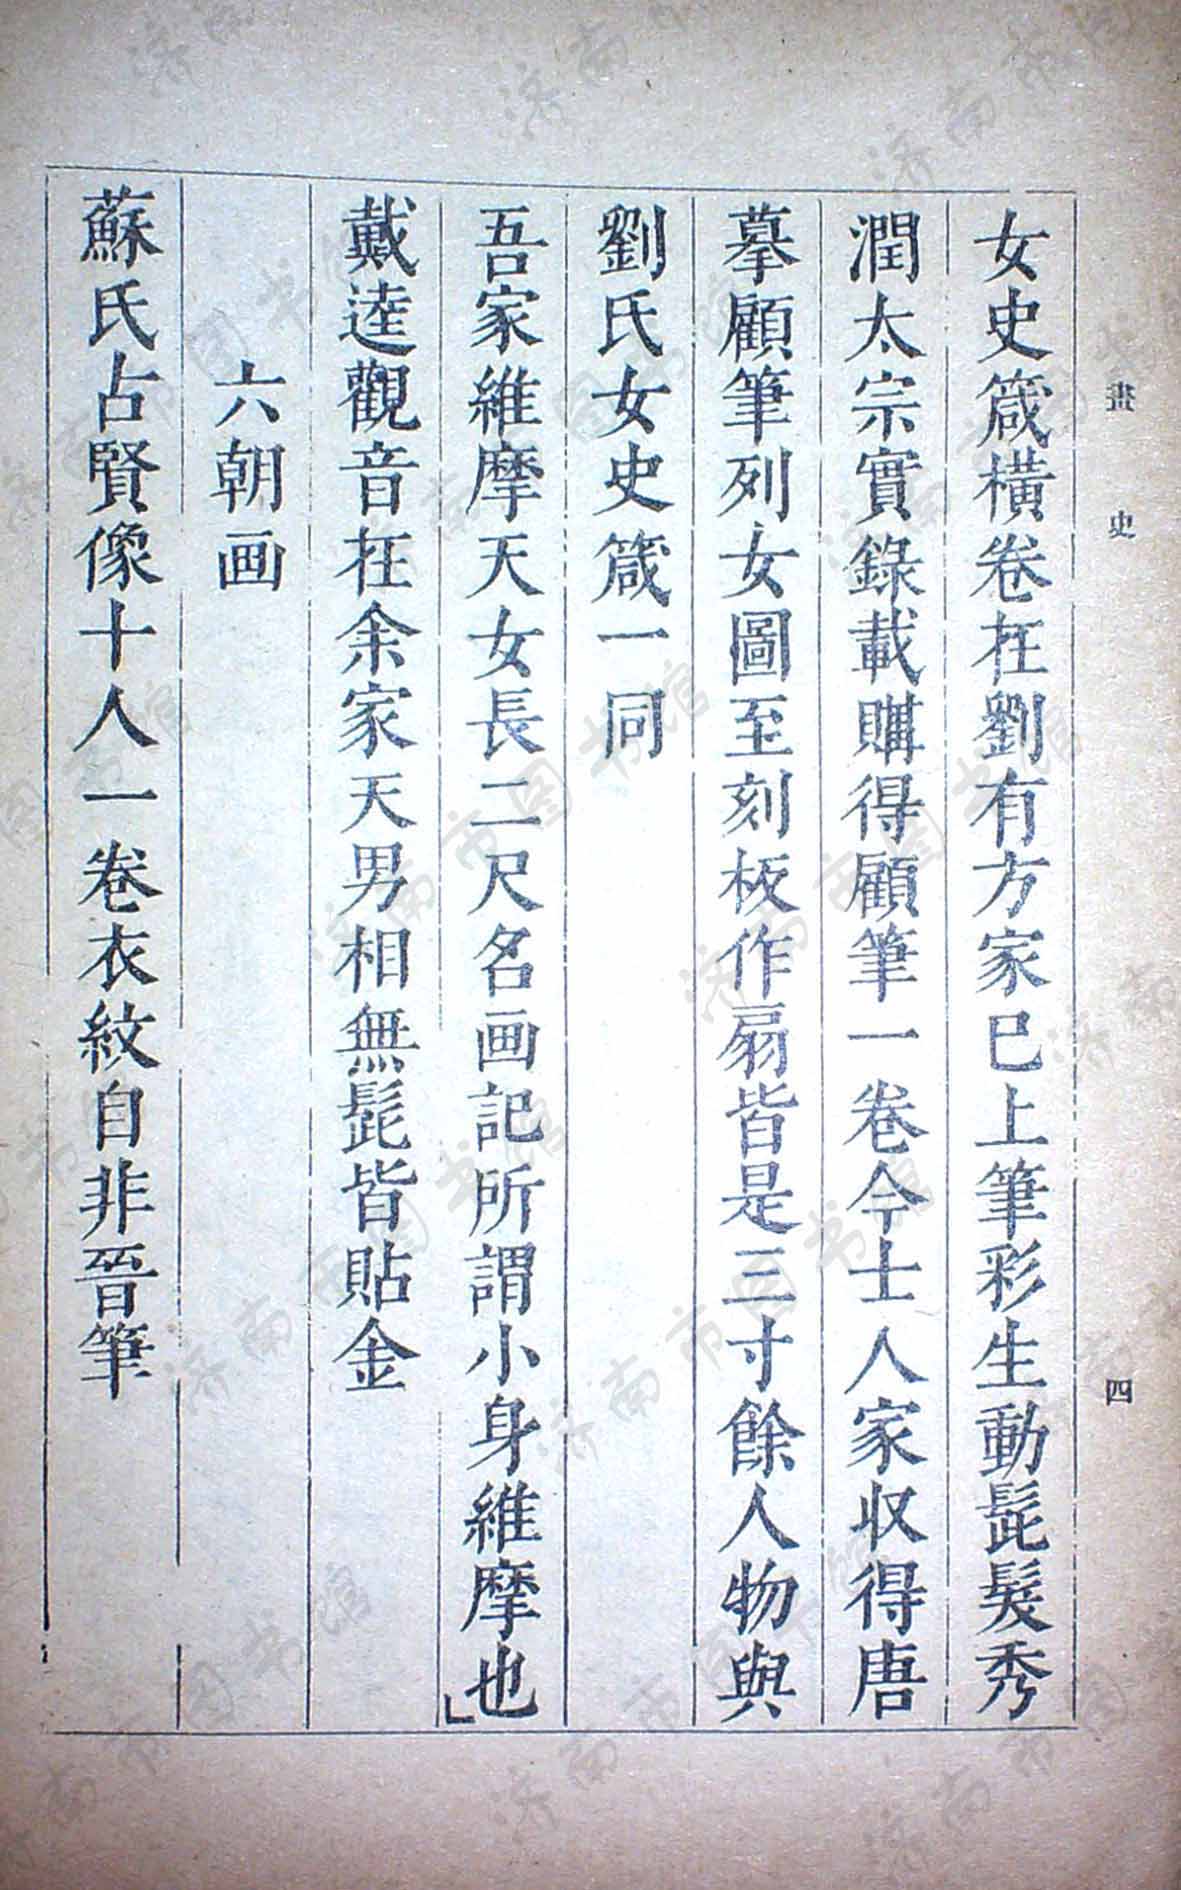 畫史 四
女史箴橫卷在劉有方家已上筆彩生動髭髮秀
潤太宗實錄載購得顧筆一卷今士人家收得唐
摹顧筆列女圖至刻板作扇皆是三寸餘人物與
劉氏女史箴一同
吾家維摩天女長二尺名画記所謂小身維摩也
戴逵觀音在余家天男相無髭皆貼金
六朝画
蘇氏占賢像十人一卷衣紋自非晉筆
济南市图书馆